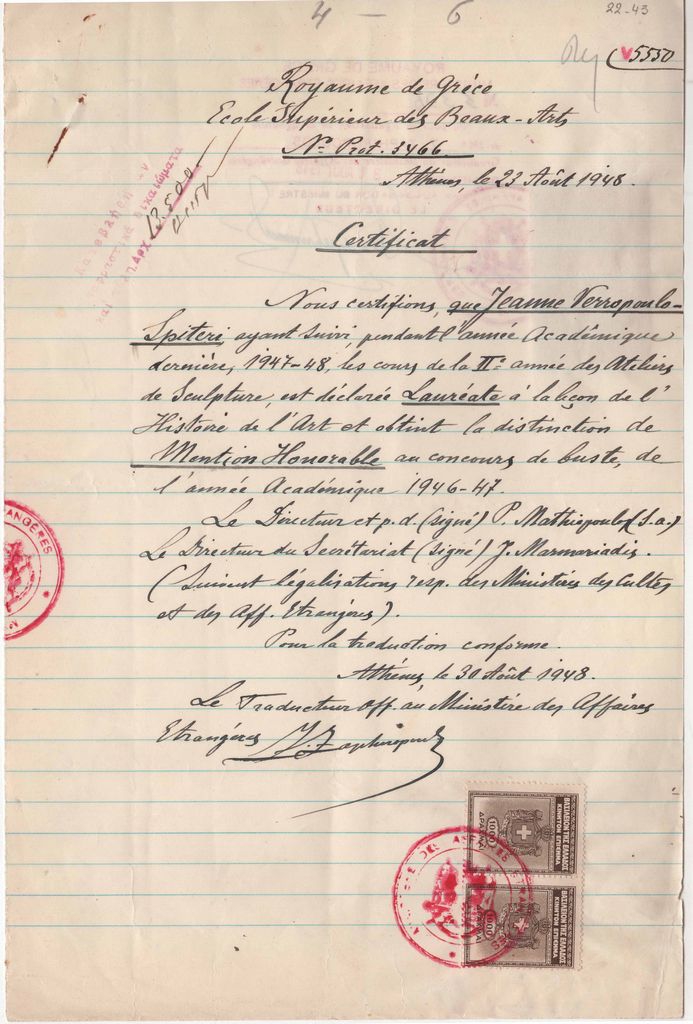 4 - 6
22-43
V5550
Royaume de Gréce
Ecole Supérieur des Beaux-Arts
No Prot. 3466.
Athénes, le 23 Aôut 1948.
Certificat
Nous certifions, que Jeanne Verropoulo-
Spiteri, ayant suivi, pendant l'année Académique
derniére, 1947-48, les cours de la IIe année des Ateliers
de Sculpture, est déclarée Lauréate à la leçon de l'
Histoire de l'Art et obtint la distinction de
Mention Honorable au concours de buste, de
l'année Académique 1946-47.
Le Directeur et p.d. (signé) P. Mathiopoulos (S.a.)
Le Directeur du Secrétariat (signé) J. Marmariadis.
(Suivent légalisations resp. des Ministéres des Cultes
et des Aff. Etrangéres).
Pour la traduction conforme.
Athénes le 30 Aôut 1948.
Le Traducteur off. au Ministére des Affaires
Etrangéres
ΒΑΣΙΛΕΙΟΝ ΤΗΣ ΕΛΛΑΔΟΣ
ΚΙΝΗΤΟΝ ΕΠΙΣΗΜΑ
1000
ΔΡΑΧΜΑΙ
ΒΑΣΙΛΕΙΟΝ ΤΗΣ ΕΛΛΑΔΟΣ
ΚΙΝΗΤΟΝ ΕΠΙΣΗΜΑ
1000
ΔΡΑΧΜΑΙ